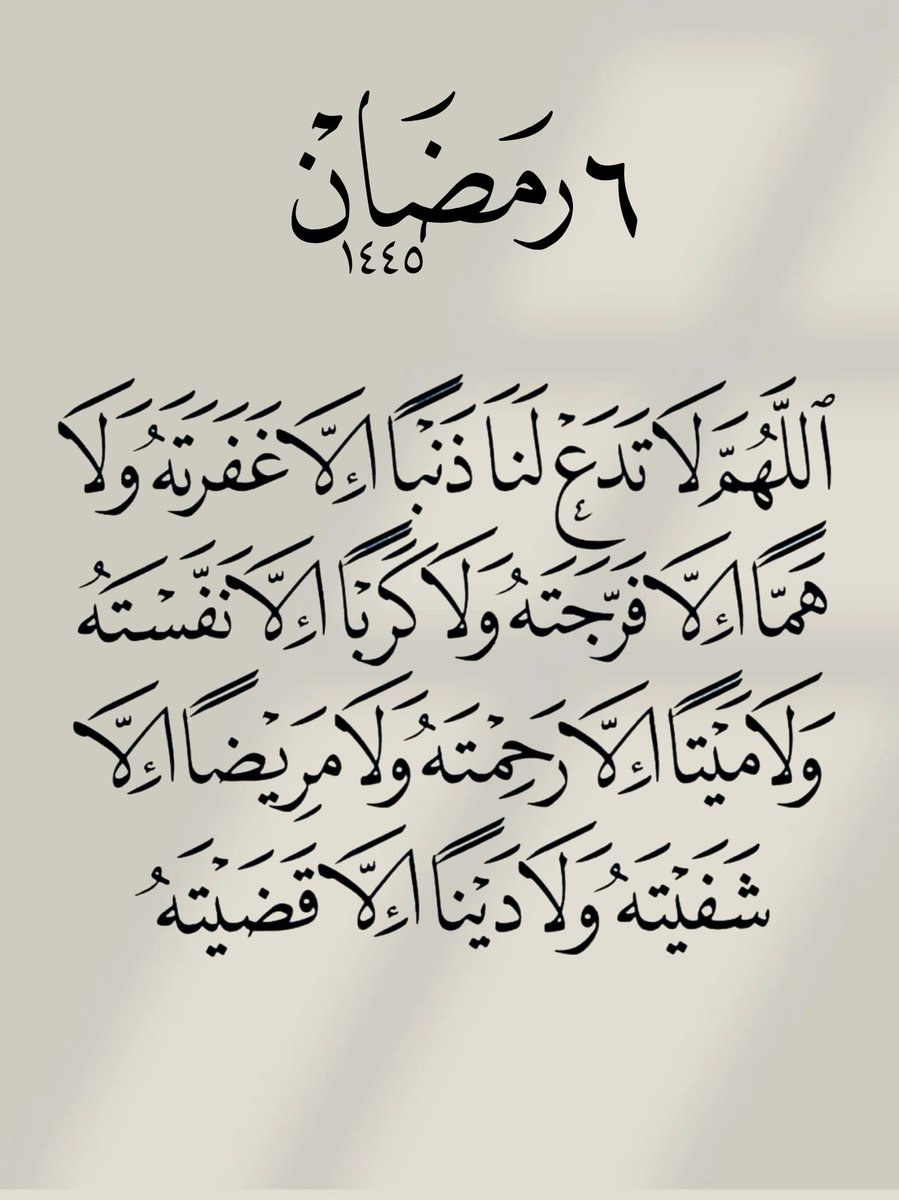 ٦ رَمَضَانْ
١٤٤٥
ٱللَّهُمَّ لَا تَدَعْ لَنَا ذَنْبًا اِلَّا غَفَرَتَهُ وَلَا
هَمًّا اِلَّا فَرَّجَتَهُ وَلَا كَرْبًا اِلَّا نَفَّسْتَهُ
وَلَا مَيْتًا اِلَّا رَحِمْتَهُ وَلَا مَرِيْضًا اِلَّا
شَفَيْتَهُ وَلَا دَيْنًا اِلَّا قَضَيْتَهُ